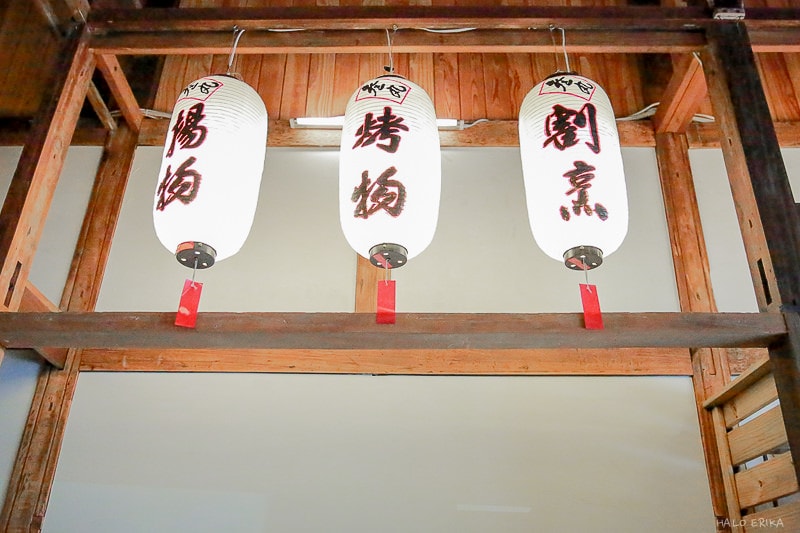 揚物
烤物
割烹
HALO ERIKA